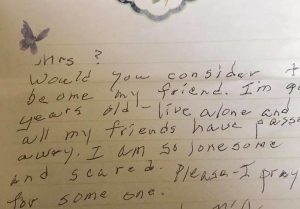 Mrs ?
Would you consider t
become my friend. I'm 90
years old - live alone and
all my friends have passe
away. I am so lonesome
and scared. Please - I pray
for some one.